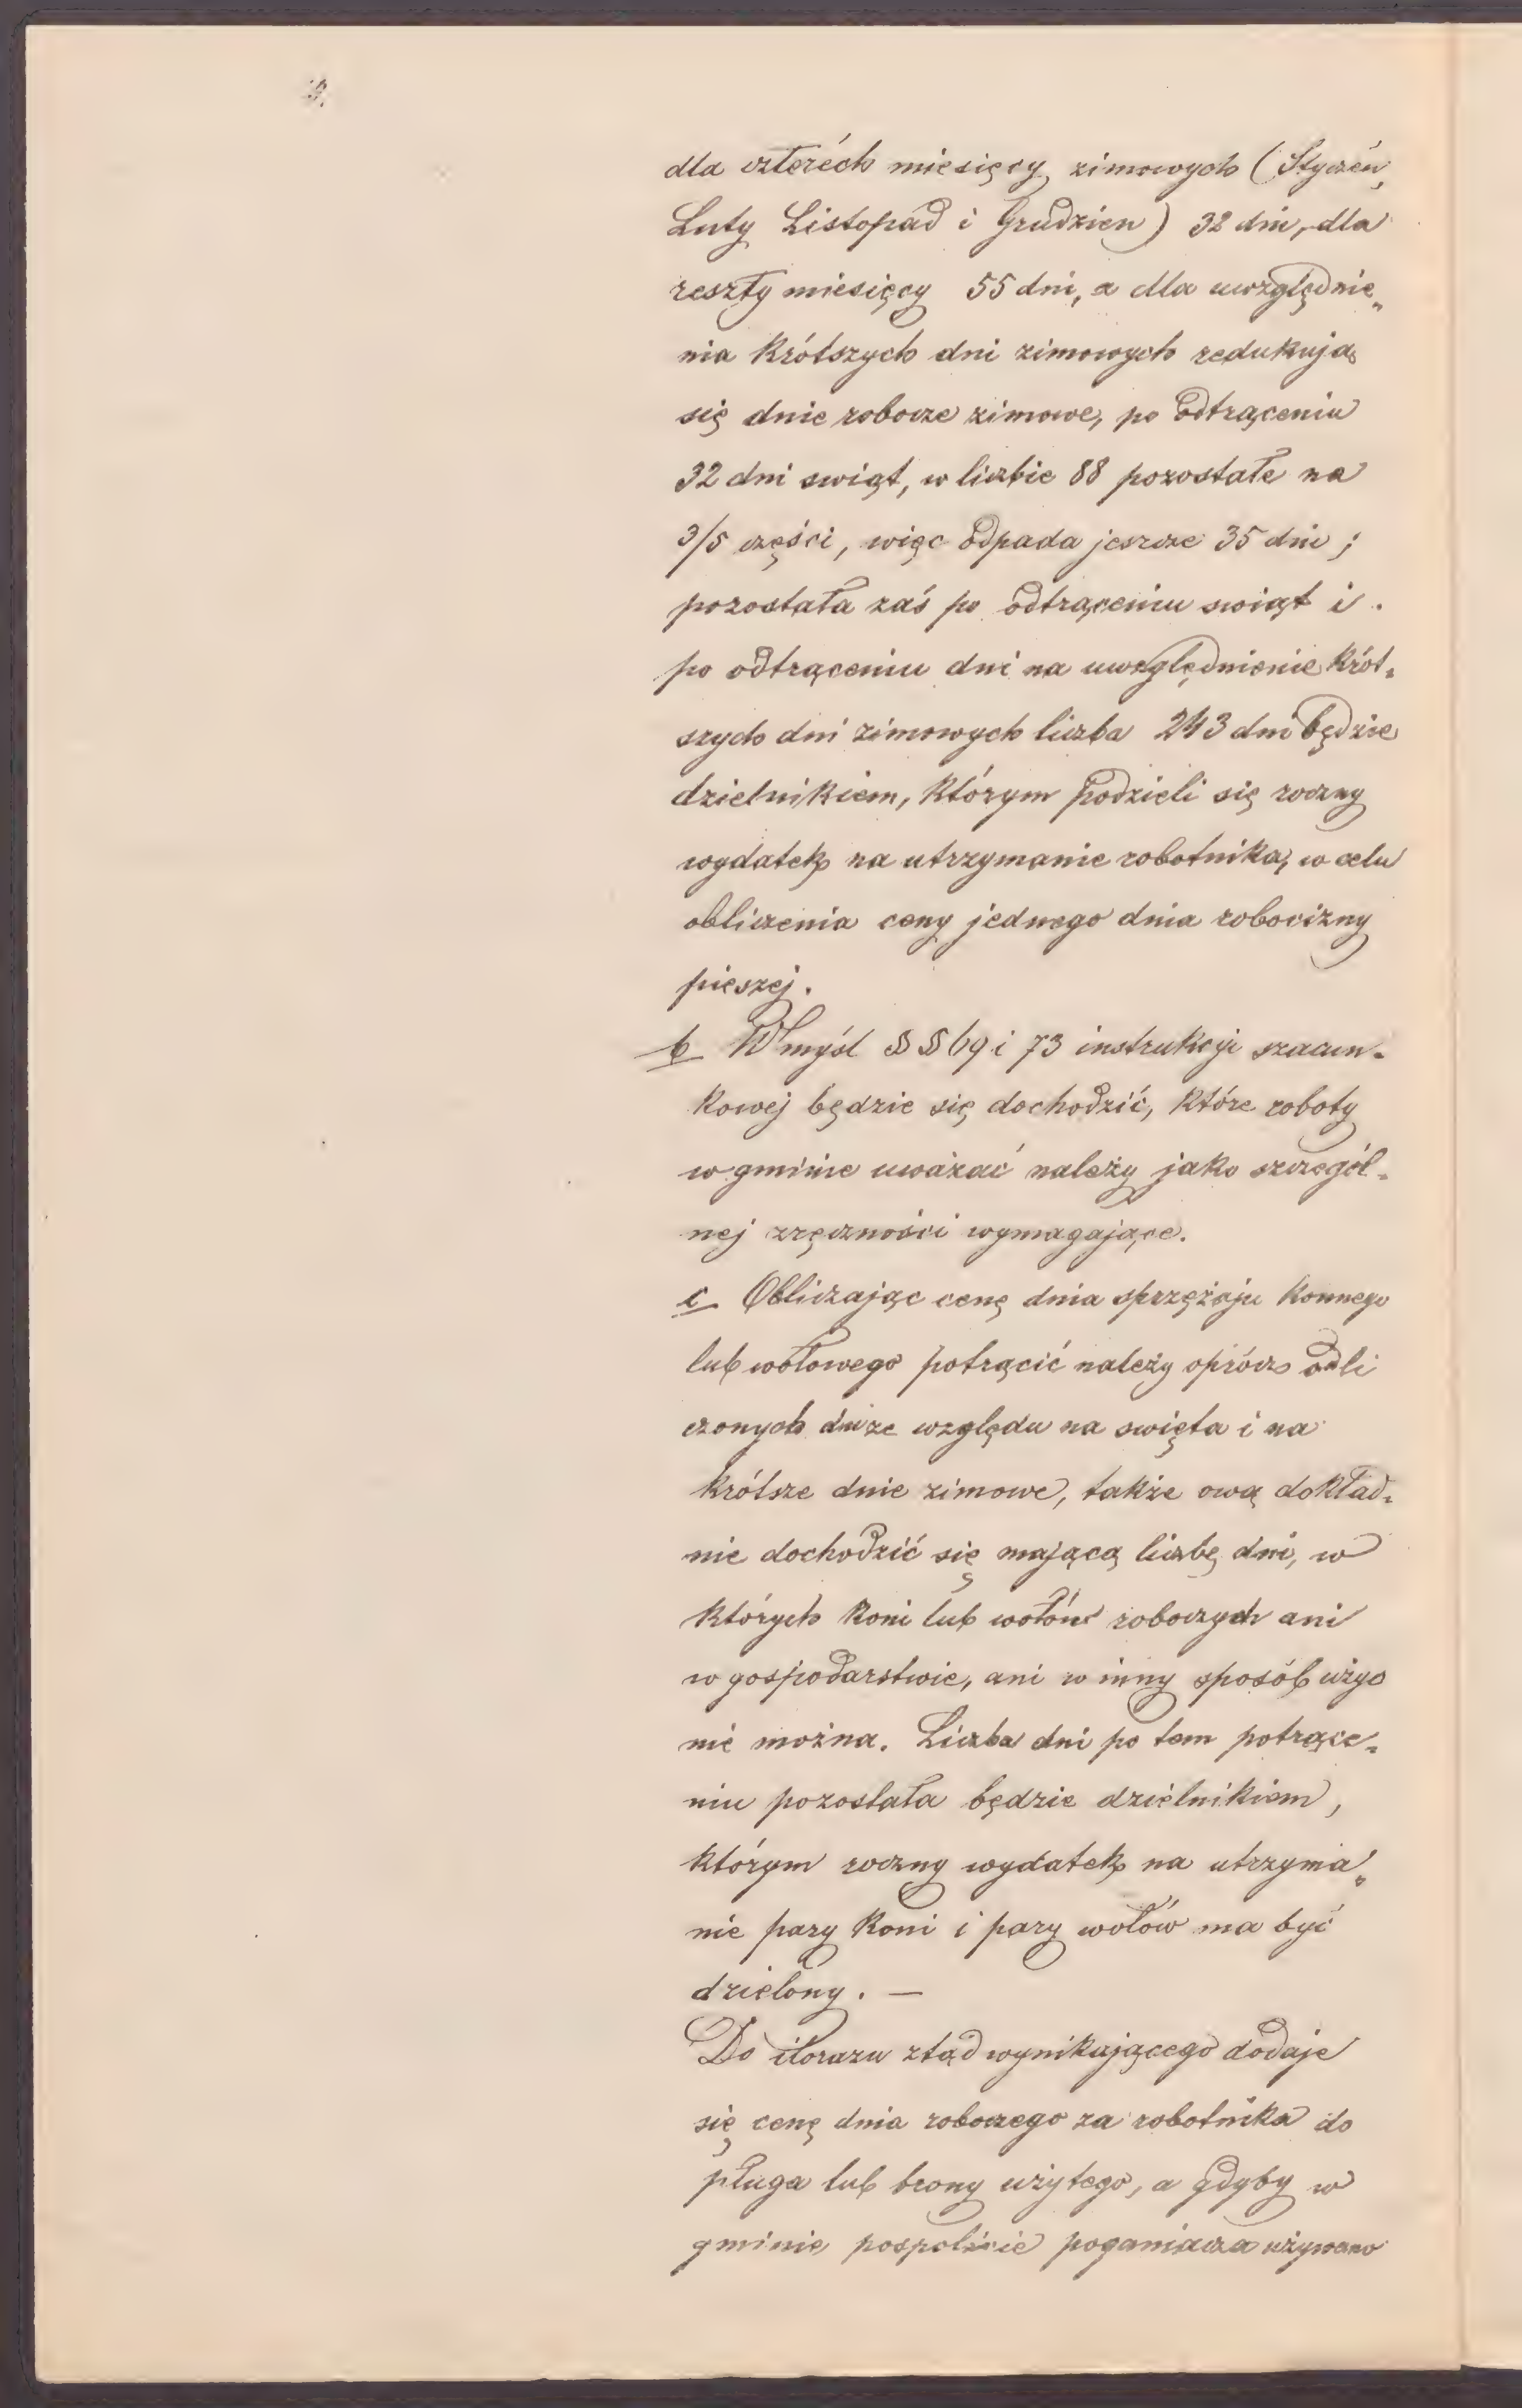 dla czterech miesięcy zimowych (Styczeń,
Luty Listopad i Grudzien) 32 dni, dla
reszty miesięcy 55 dni, a dla uwzględnie„
nia krótszych dni zimowych redukują
się dnie robocze zimowe, po odtrąceniu
32 dni swiąt, w liczbie 88 pozostałe na
3/5 części, więc odpada jeszcze 35 dni;
pozostała zaś po odtrąceniu swiąt i
po odtrąceniu dni na uwzględnienie krót„
szych dni zimowych liczba 243 dni będzie
dzielnikiem, którym podzieli się roczny
wydatek na utrzymanie robotnika, w celu
obliczenia ceny jednego dnia robocizny
pieszej.
b W myśl §§ 69 i 73 instrukcji szacun-
kowej będzie się dochodzić, które roboty
w gminie uważać należy jako szczegól-
nej zręczności wymagające.
c Obliczając cenę dnia sprzężaju konnego
lub wołowego potrącić należy oprócz odli
czonych dni ze względu na swięta i na
krótsze dnie zimowe, także ową dokład„
nie dochodzić się mającą liczbę dni, w
których koni lub wołów roboczych ani
w gospodarstwie, ani w inny sposób użyc
nie można. Liczba dni po tem potrące„
niu pozostała będzie dzielnikiem,
którym roczny wydatek na utrzyma„
nie pary koni i pary wołów ma być
dzielony. —
Do ilorazu ztąd wynikającego dodaje
się cenę dnia roboczego za robotnika do
pługa lub brony użytego, a gdyby w
gminie pospolicie poganiacza używano